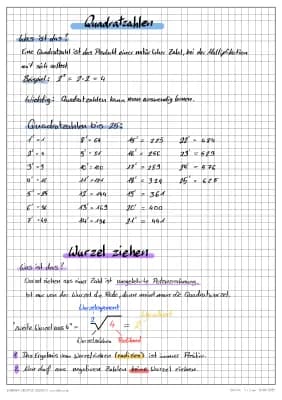 Quadratzahlen
Was ist das?
Eine Quadratzahl ist das Produkt einer natürlichen Zahl, bei der Multiplikation
mit sich selbst
Beispiel: 2² = 2·2 = 4
Wichtig: Quadratzahlen kann man auswendig lernen.
Quadratzahlen bis 25:
1² = 1 8² = 64 15² = 225 22² = 484
2² = 4 9² = 81 16² = 256 23² = 529
3² = 9 10² = 100 17² = 289 24² = 576
4² = 16 11² = 121 18² = 324 25² = 625
5² = 25 12² = 144 19² = 361
6² = 36 13² = 169 20² = 400
7² = 49 14² = 196 21² = 441
Wurzel ziehen
Was ist das?
Wurzel ziehen aus einer Zahl ist umgekehrte Potenzrechnung
Ist nur von der Wurzel die Rede, dann meint man die Quadratwurzel.
Wurzelexponent
"zweite Wurzel aus 4" = ²√4 = 2
Wurzelzeichen Radikand
1. Das Ergebnis vom Wurzelziehen (radizieren) ist immer Positiv.
2. Man darf aus negativen Zahlen keine Wurzel ziehen.